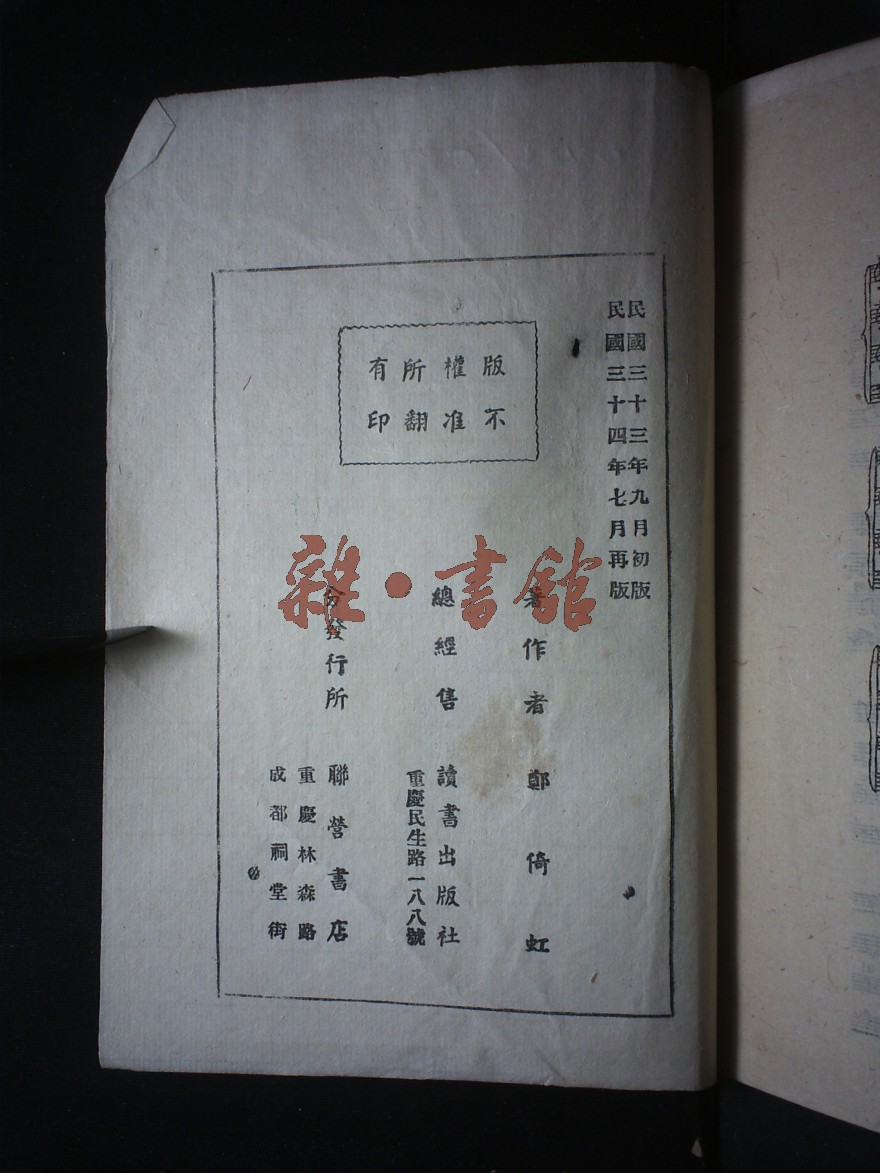 民國三十三年九月初版
民國三十四年七月再版
版權所有
不准翻印
著作者 鄭倚虹
總經售 讀書出版社
重慶民生路一八八號
分發行所 聯營書店
重慶林森路
成都祠堂街
雜·書館